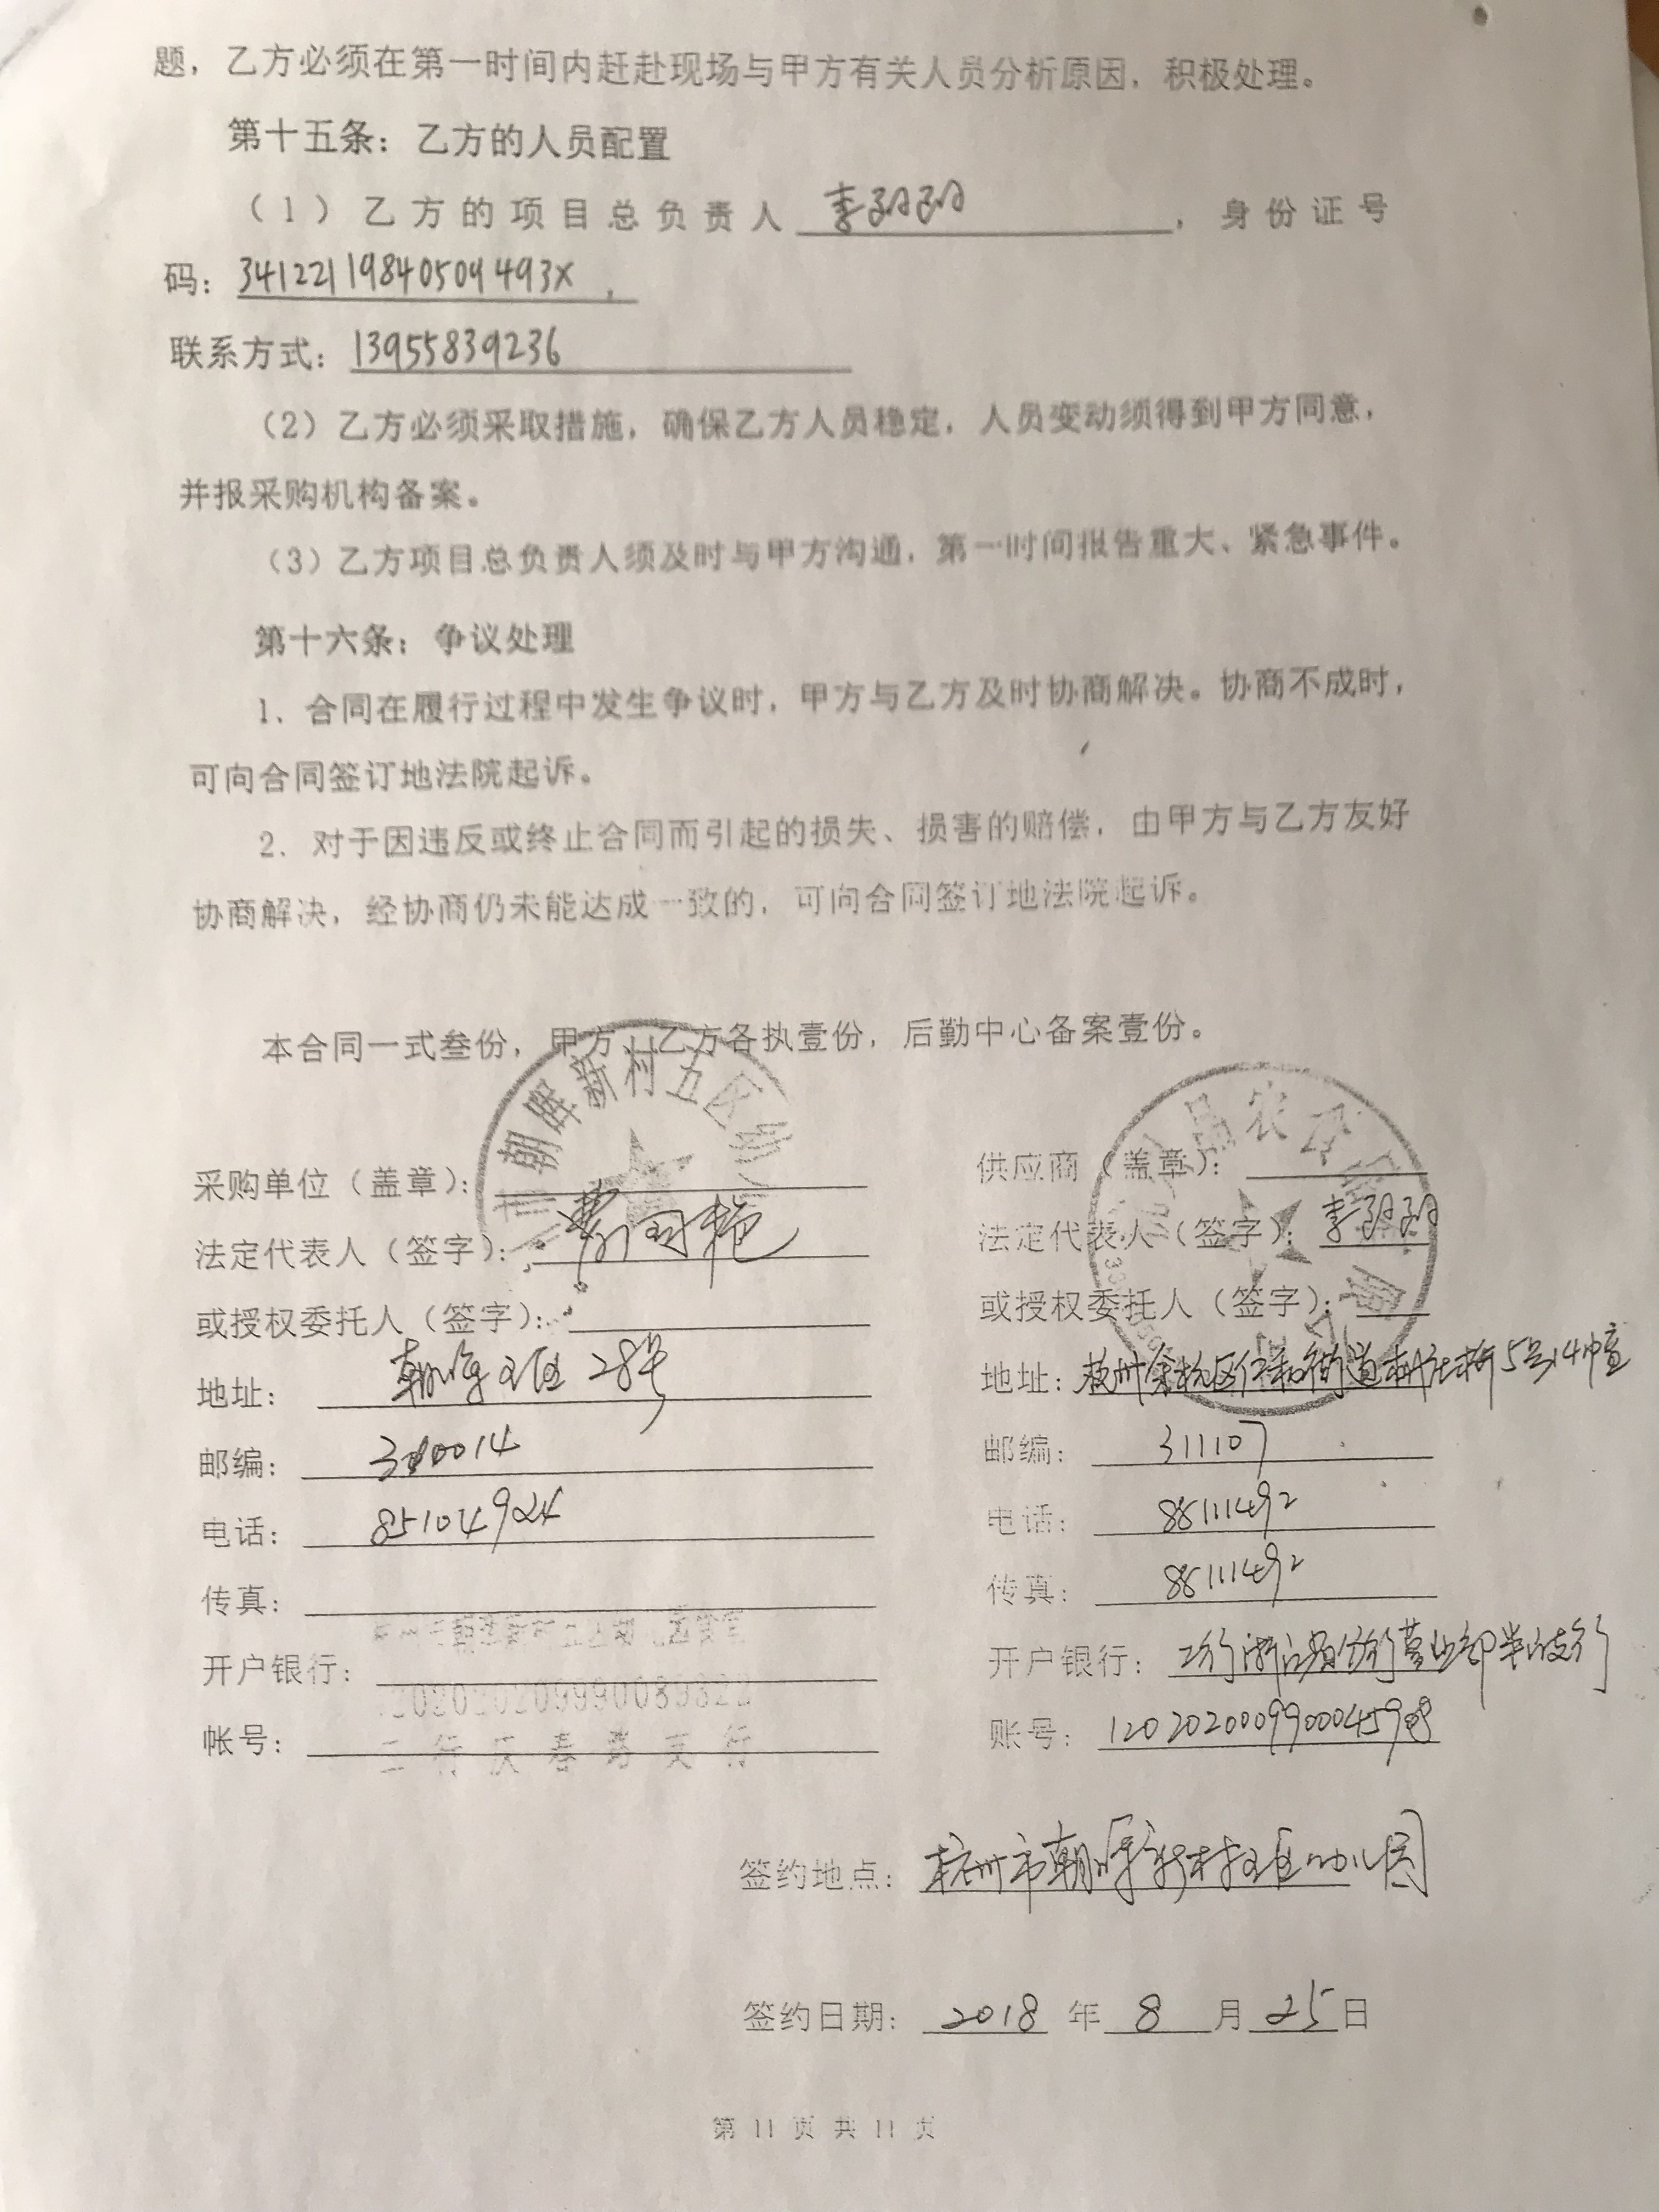 题，乙方必须在第一时间内赶赴现场与甲方有关人员分析原因，积极处理。
第十五条：乙方的人员配置
（1）乙方的项目总负责人 李孖孖，身份证号
码：34122119840509493X，
联系方式：13955839236
（2）乙方必须采取措施，确保乙方人员稳定，人员变动须得到甲方同意，
并报采购机构备案。
（3）乙方项目总负责人须及时与甲方沟通，第一时间报告重大、紧急事件。
第十六条：争议处理
1．合同在履行过程中发生争议时，甲方与乙方及时协商解决。协商不成时，
可向合同签订地法院起诉。
2．对于因违反或终止合同而引起的损失、损害的赔偿，由甲方与乙方友好
协商解决，经协商仍未能达成一致的，可向合同签订地法院起诉。
本合同一式叁份，甲方、乙方各执壹份，后勤中心备案壹份。
朝晖新村五区幼
采购单位（盖章）：
法定代表人（签字）：
或授权委托人（签字）：
地址：朝晖五区28号
邮编：310014
电话：85104924
传真：
开户银行：
帐号：
昌农
供应商（盖章）：
法定代表人（签字）：李孖孖
或授权委托人（签字）：
地址：杭州余杭区仁和街道 5号14幢
邮编：311107
电话：88111492
传真：88111492
开户银行：工行浙江省分行营业部半山支行
账号：
签约地点：杭州市朝晖新村五区幼儿园
签约日期：2018 年 8 月 25 日
第 11 页 共 11 页